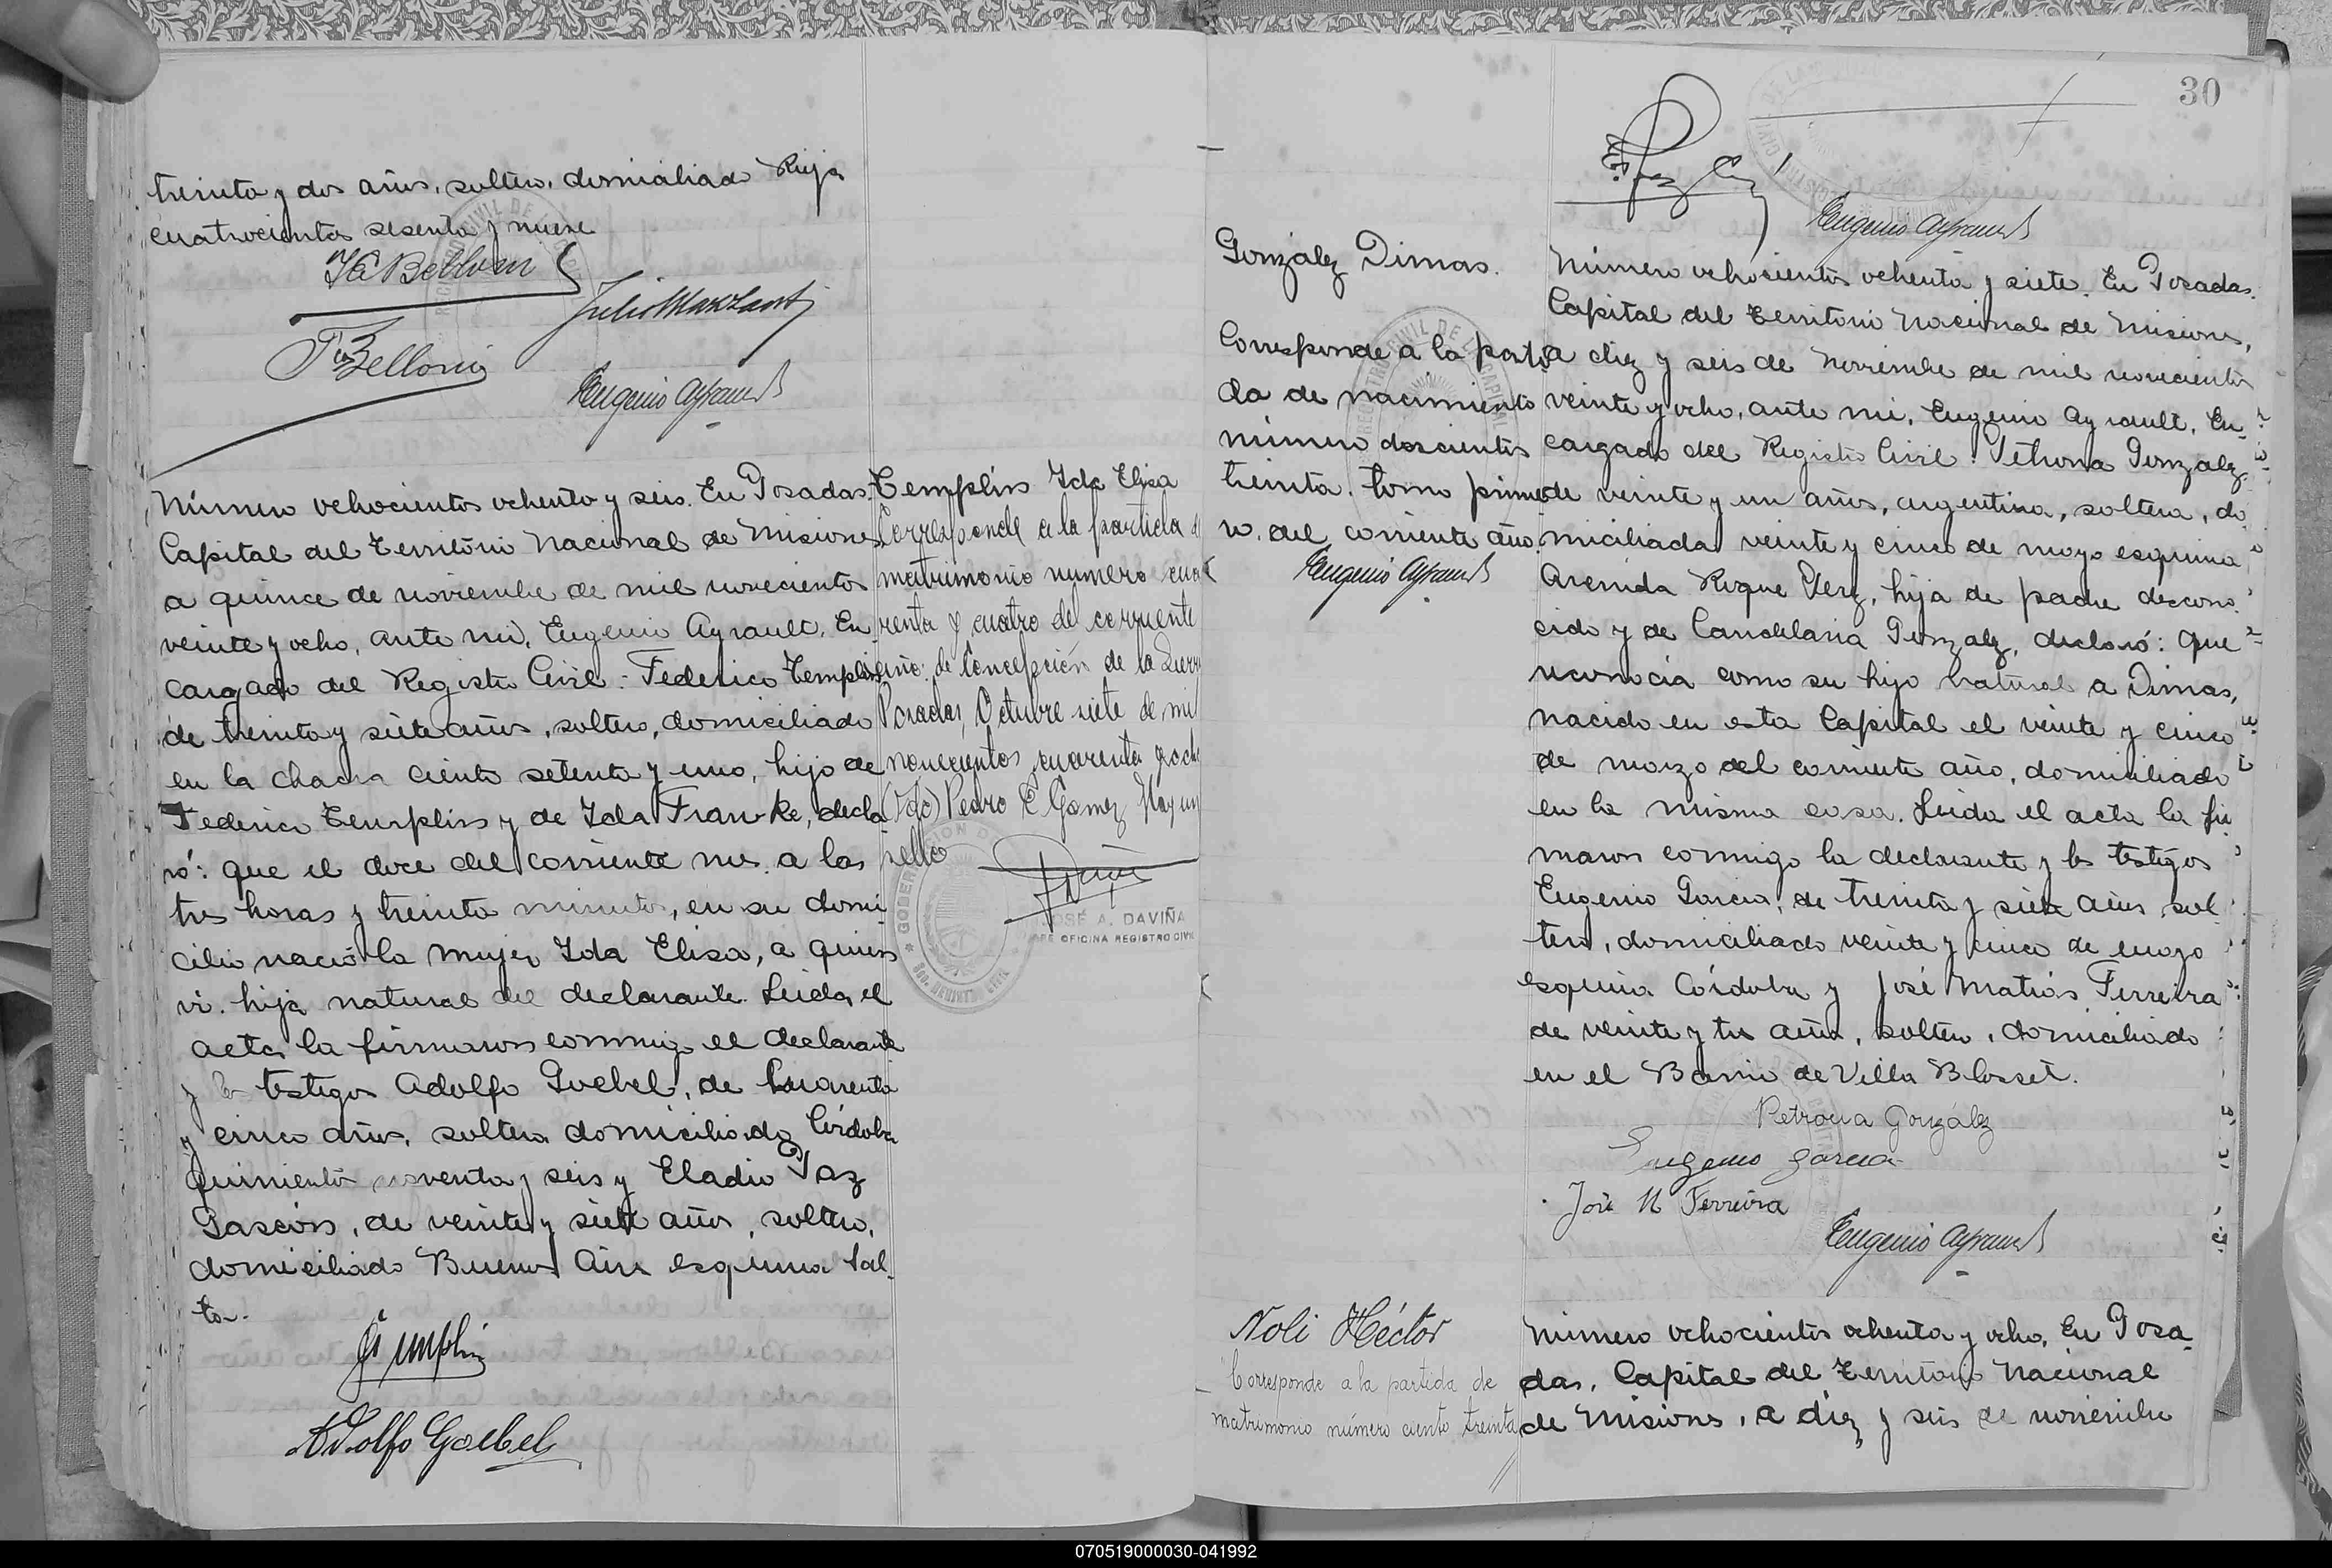 treinta y dos años, soltero, domiciliado Rioja
cuatrocientos sesenta y nueve
Número ochocientos ochenta y seis. En Posadas,
Capital del Territorio Nacional de Misiones
a quince de noviembre de mil novecientos
veinte y ocho, ante mi, Eugenio Ayrault, En
cargado del Registro Civil: Federico Templin
de treinta y siete años, soltero, domiciliado
en la chacra ciento setenta y uno, hijo de
Federico Templin y de Ida Franke, decla
ró: que el doce del corriente mes a las
tres horas y treinta minutos, en su domi
cilio nació la mujer Ida Elisa, a quien
vi. hija natural del declarante. Leida el
acta la firmaron conmigo el declarante
y los testigos Adolfo Goebel, de cuarenta
y cinco años, soltero domiciliado Córdoba
quinientos noventa y seis y Eladio Paz
Gascón, de veinte y siete años, soltero,
domiciliado Buenos Aires esquina Sal
ta.
Adolfo Goebel
Templin Ida Elisa
Corresponde a la partida d
matrimonio numero cua
renta y cuatro del corriente
año de Concepción de la Sierra
Posadas, Octubre siete de mil
novecientos cuarenta y och
(Fdo) Pedro E Gomez Hay un
sello
JOSÉ A. DAVIÑA
JEFE OFICINA REGISTRO CIVIL
30
Eugenio Ayrault
González Dimas.
Corresponde a la parti
da de nacimiento
número doscientos
treinta. tomo prime
ro. del corriente año.
Eugenio Ayrault
Número ochocientos ochenta y siete. En Posadas.
Capital del Territorio Nacional de Misiones,
a diez y seis de Noviembre de mil novecientos
veinte y ocho, ante mi, Eugenio Ayrault, En
cargado del Registro Civil: Petrona Gonzalez
de veinte y un años, argentina, soltera, do
miciliada veinte y cinco de mayo esquina
Avenida Roque Perez, hija de padre descono
cido y de Candelaria Gonzalez, declaró: Que
reconocia como su hijo natural a Dimas,
nacido en esta Capital el veinte y cinco
de marzo del corriente año, domiciliado
en la misma casa. Leida el acta la fir
maron conmigo la declarante y los testigos
Eugenio Garcia, de treinta y siete años sol
tero, domiciliado veinte y cinco de mayo
esquina Córdoba y José Matias Ferreira
de veinte y tres años, soltero, domiciliado
en el Barrio de Villa Blosset.
Petrona González
Eugenio Garcia
José M Ferreira
Eugenio Ayrault
Noli Héctor
Corresponde a la partida de
matrimonio número ciento treinta
Número ochocientos ochenta y ocho. En Posa
das, Capital del Territorio Nacional
de Misiones, a diez y seis de noviembre
070519000030-041992